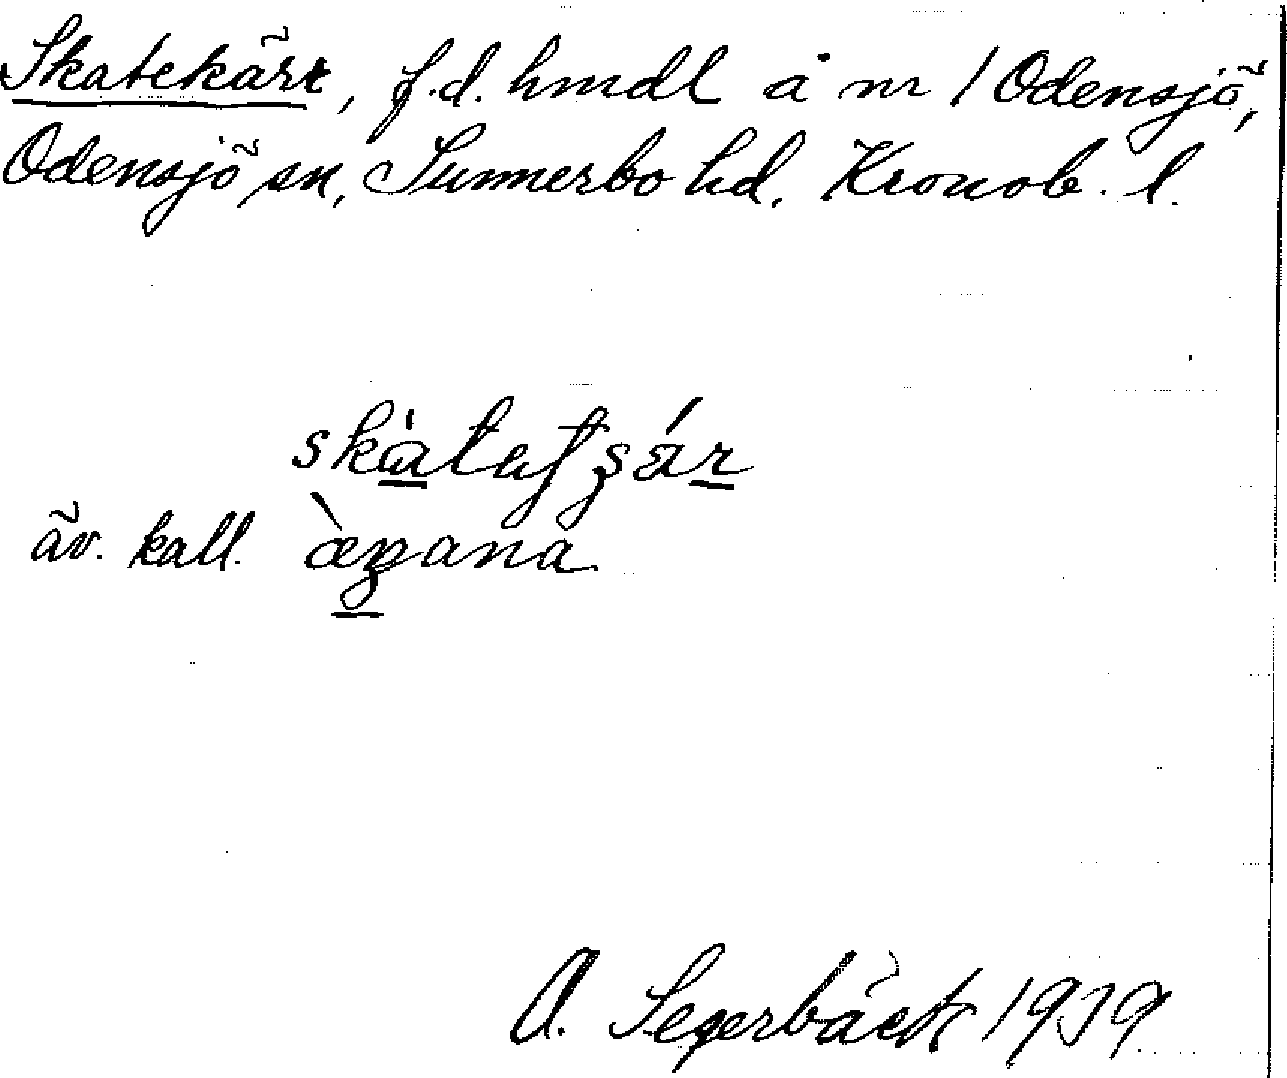 Skatekärr, f.d. hmdl å nr 1 Odensjö,
Odensjö sn, Sunnerbo hd. Kronob. l.
äv. kall. 
A. Segerbäck 1939